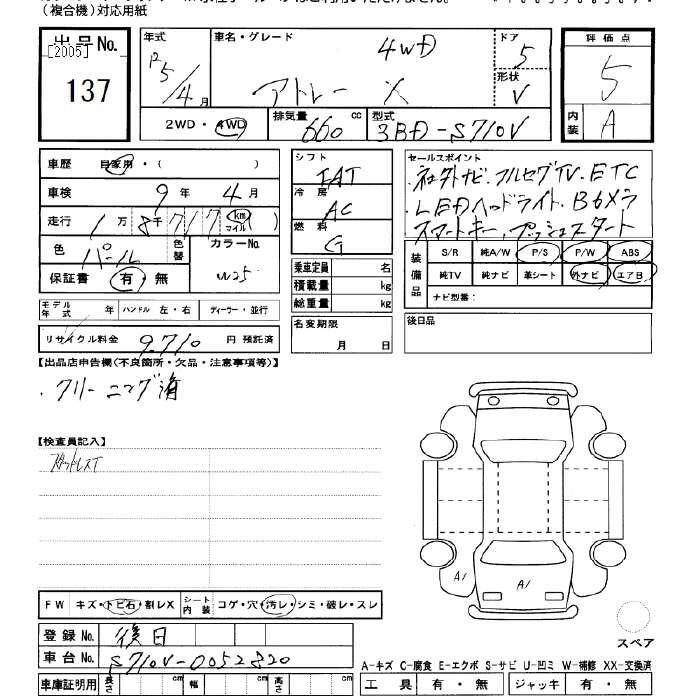 （複合機）対応用紙
出品No. [2005] 137
年式 R5/4月
車名・グレード 4WD アトレー X
ドア 5
形状 V
2WD・4WD
排気量 660 cc
型式 3BD-S710V
評価点 5
内装 A
車歴 自家用・( )
車検 9年 4月
走行 1万8千717 km マイル
色 パール 色替 カラーNo. W25
保証書 有・無
モデル年式 年 ハンドル 左・右 ディーラー・並行
リサイクル料金 9,710 円 預託済
シフト IAT
冷房 AC
燃料 G
乗車定員 名
積載量 kg
総重量 kg
名変期限 月 日
セールスポイント
・社外ナビ.フルセグTV.ETC
・LEDヘッドライト.Bカメラ
スマートキー.プッシュスタート
装備品 S/R 純A/W P/S P/W ABS
純TV 純ナビ 革シート 外ナビ エアB
ナビ型番：
後日品
【出品店申告欄(不良箇所・欠品・注意事項等)】
・クリーニング済
【検査員記入】
スタッドレスT
A1
A1
スペア
FW キズ・トビ石・割レX シート内装 コゲ・穴・汚レ・シミ・破レ・スレ
登録No. 後日
車台No. S710V-0052820
車庫証明用 長さ cm 幅 cm 高さ cm
A-キズ C-腐食 E-エクボ S-サビ U-凹ミ W-補修 XX-交換済
工具 有・無 ジャッキ 有・無